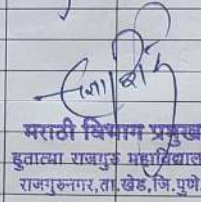 मराठी विभाग प्रमुख
हुतात्मा राजगुरु महाविद्यालय
राजगुरुनगर, ता.खेड, जि.पुणे.